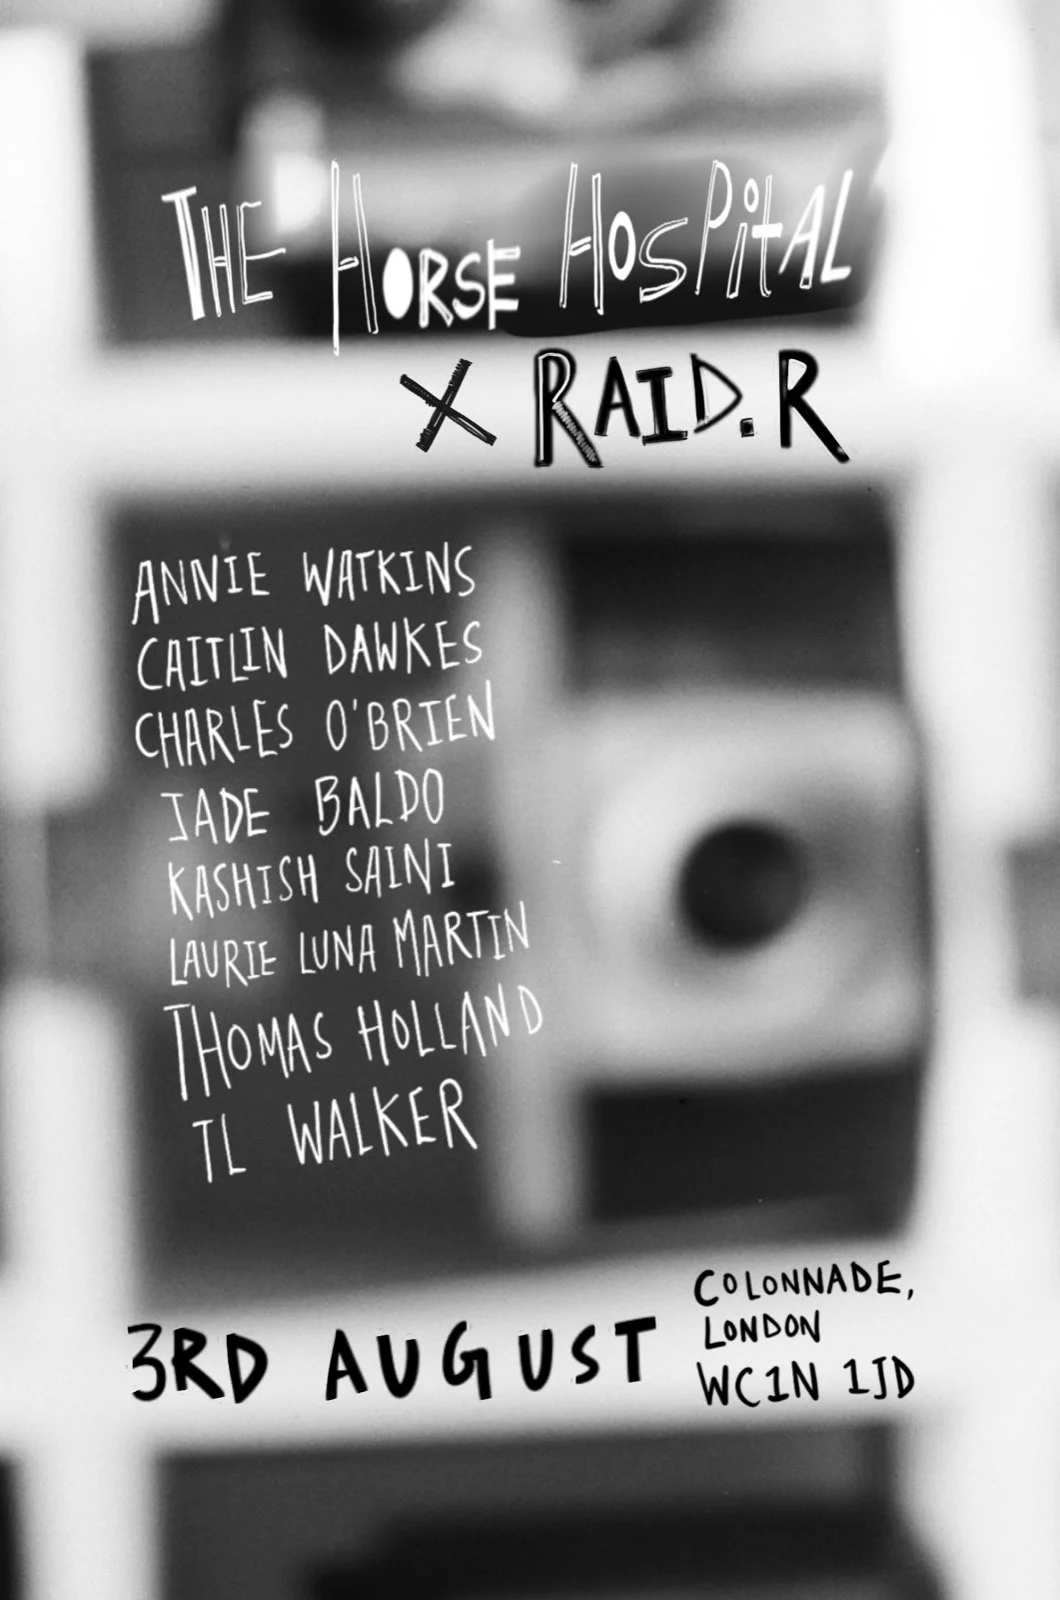 THE HORSE HOSPITAL
X RAID.R
ANNIE WATKINS
CAITLIN DAWKES
CHARLES O'BRIEN
JADE BALDO
KASHISH SAINI
LAURIE LUNA MARTIN
THOMAS HOLLAND
TL WALKER
3RD AUGUST
COLONNADE,
LONDON
WC1N 1JD